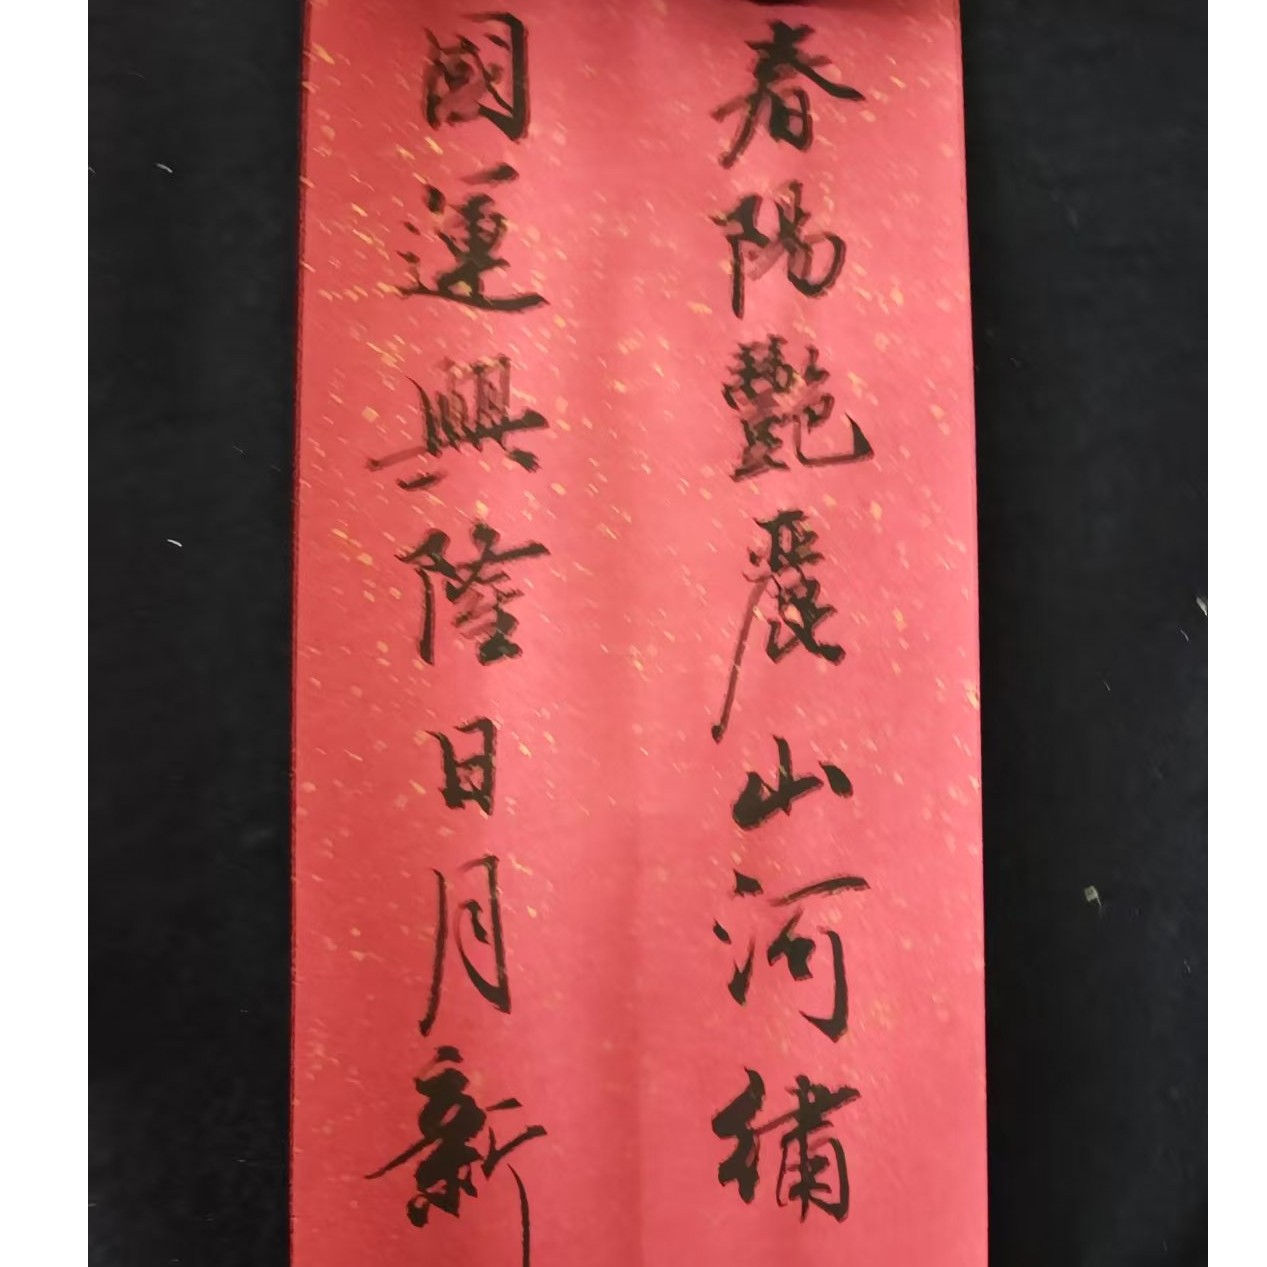 春陽艷麗山河繡
國運興隆日月新